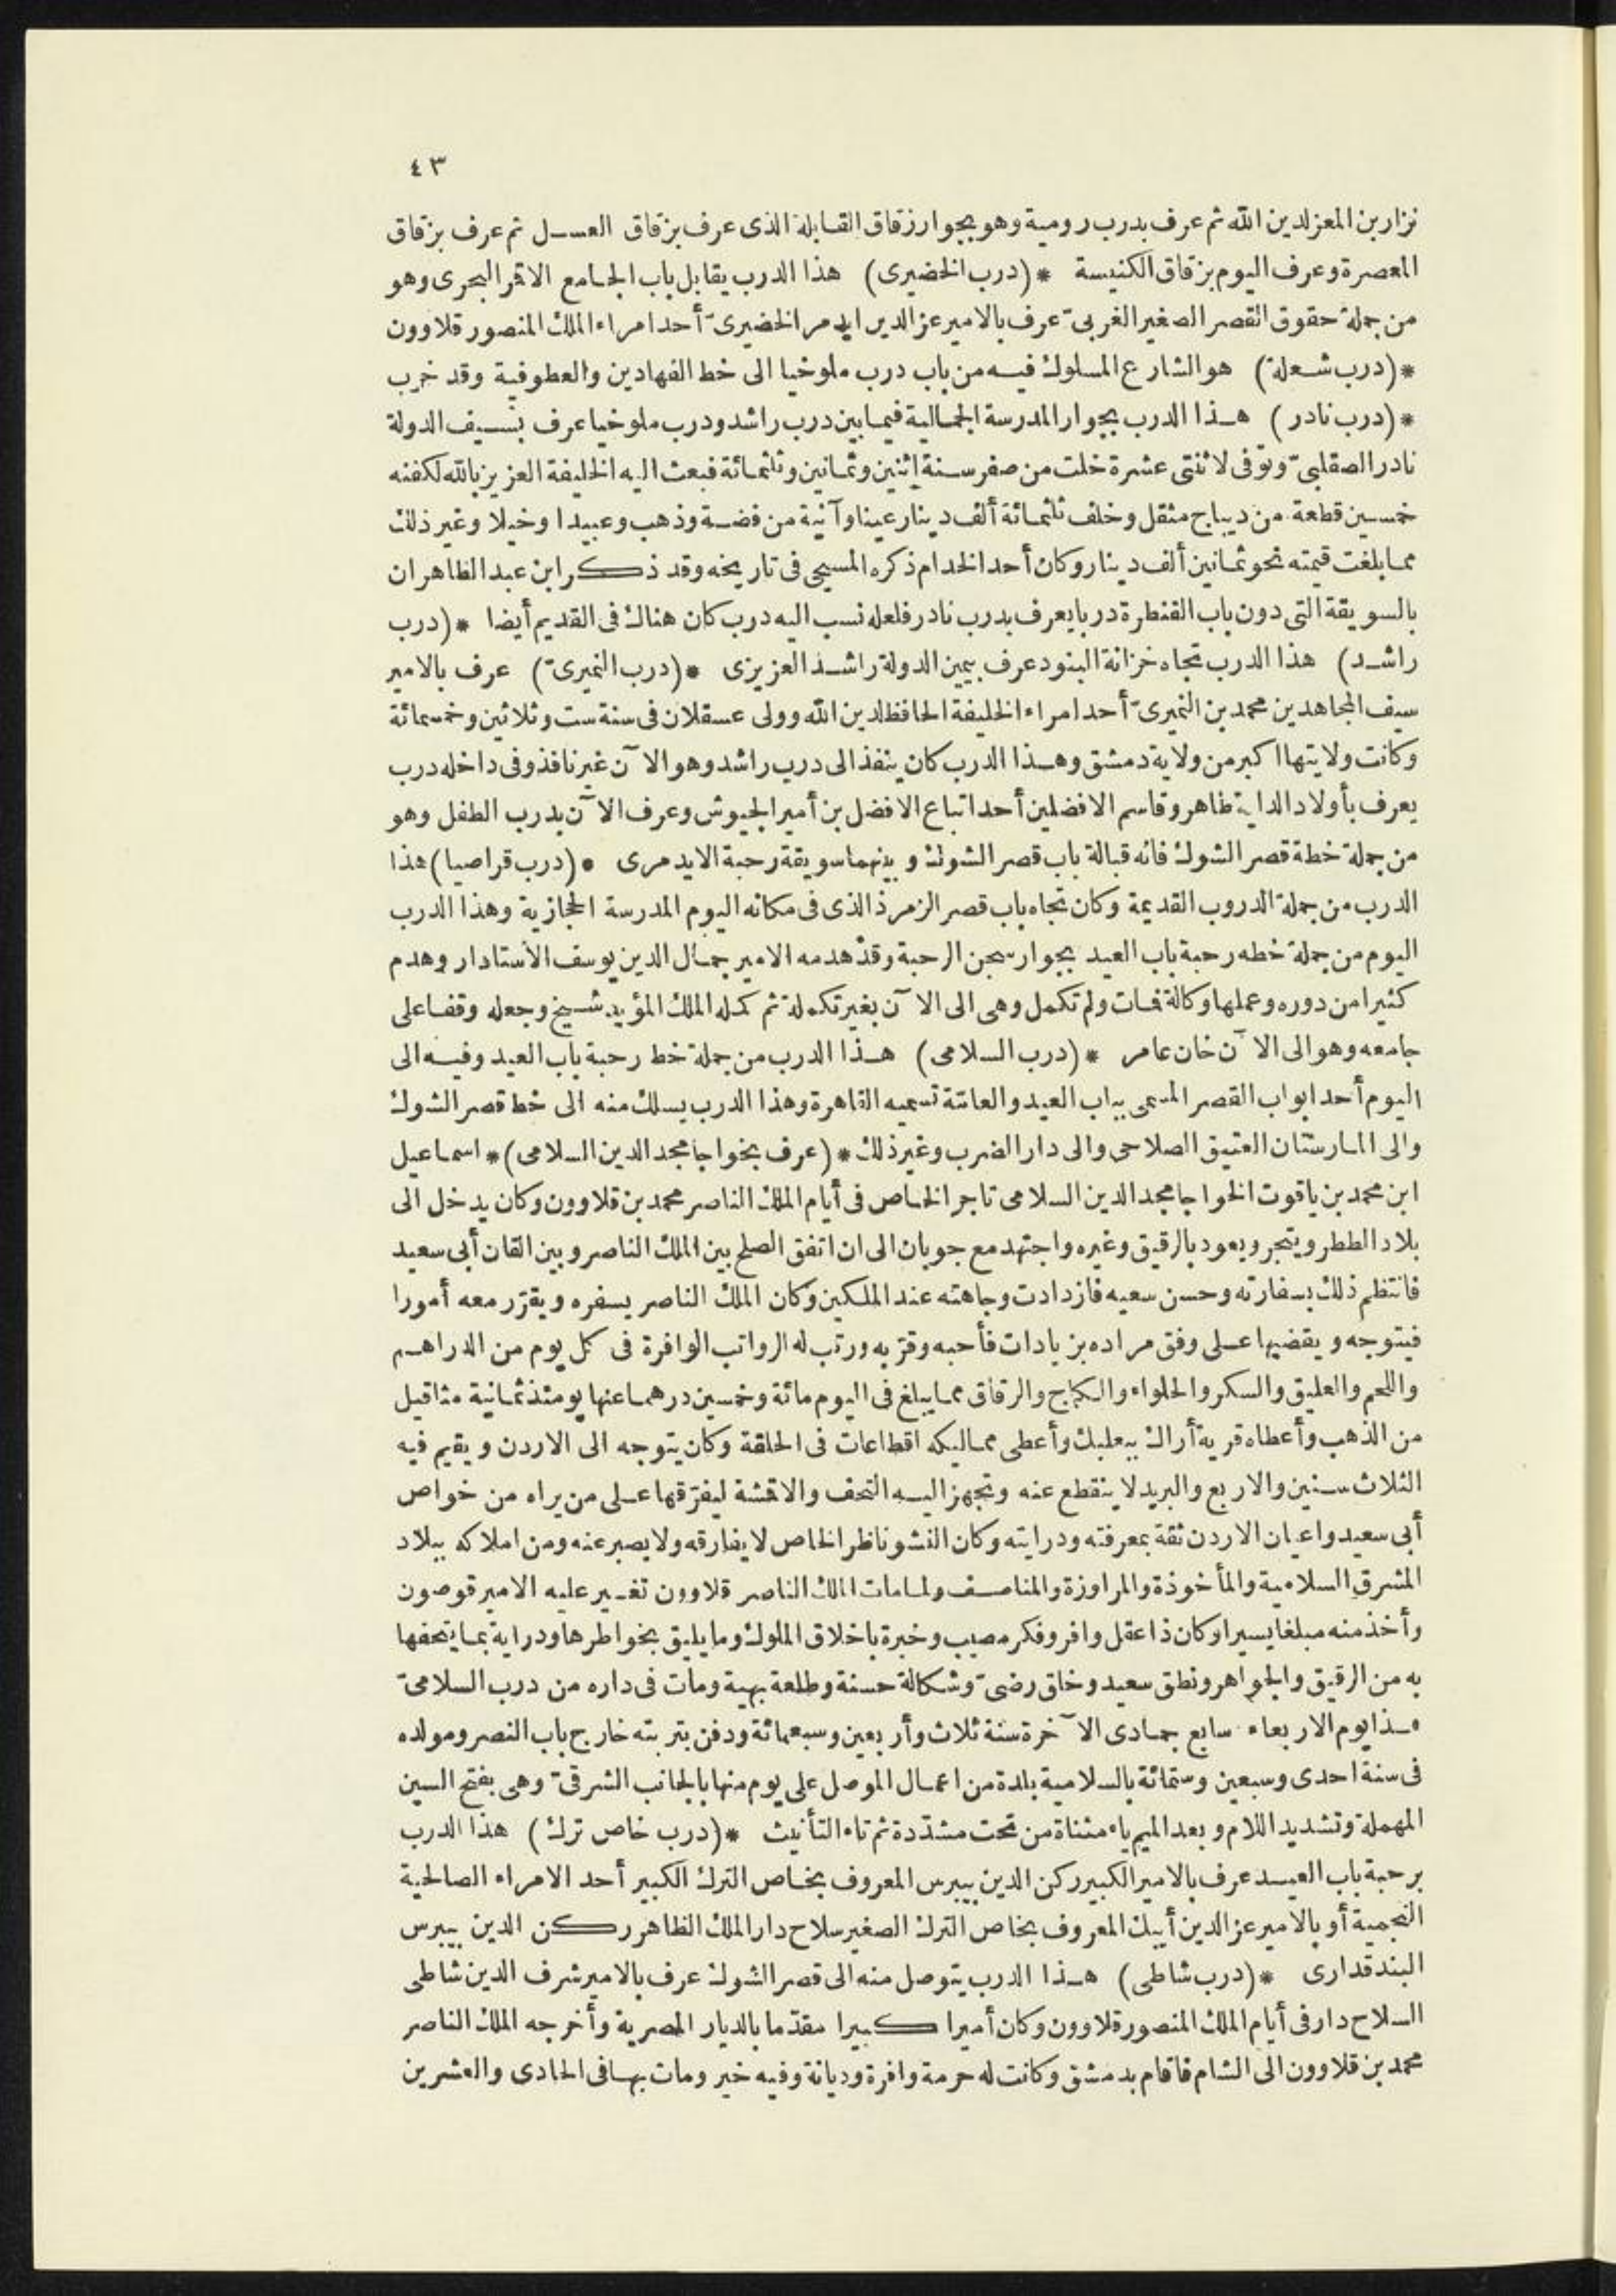 ٤٣
نزار بن المعز لدين الله ثم عرف بدرب رومية وهو بجوار زقاق القابلة الذى عرف بزقاق العسل ثم عرف بزقاق
المعصرة وعرف اليوم بزقاق الكنيسة * (درب الخضيرى) هذا الدرب يقابل باب الجامع الاقمر البحرى وهو
من جملة حقوق القصر الصغير الغربىّ عرف بالامير عز الدين ايدمر الخضيرىّ أحد امراء الملك المنصور قلاوون
* (درب شعلة) هو الشارع المسلوك فيه من باب درب ملوخيا الى خط الفهادين والعطوفية وقد خرب
* (درب نادر) هذا الدرب بجوار المدرسة الجمالية فيما بين درب راشد ودرب ملوخيا عرف بسيف الدولة
نادر الصقلبىّ وتوفى لاثنتى عشرة خلت من صفر سنة اثنين وثمانين وثلثمائة فبعث اليه الخليفة العزيز بالله لكفنه
خمسين قطعة من ديباج مثقل وخلف ثلثمائة ألف دينار عينا وآنية من فضة وذهب وعبيدا وخيلا وغير ذلك
مما بلغت قيمته نحو ثمانين ألف دينار وكان أحد الخدام ذكره المسبحى فى تاريخه وقد ذكر ابن عبد الظاهر ان
بالسويقة التى دون باب القنطرة دربا يعرف بدرب نادر فلعله نسب اليه درب كان هناك فى القديم أيضا * (درب
راشد) هذا الدرب تجاه خزانة البنود عرف بيمين الدولة راشد العزيزى * (درب النميرىّ) عرف بالامير
سيف المجاهدين محمد بن النميرىّ أحد امراء الخليفة الحافظ لدين الله وولى عسقلان فى سنة ست وثلاثين وخمسمائة
وكانت ولايتها اكبر من ولاية دمشق وهذا الدرب كان ينفذ الى درب راشد وهو الآن غير نافذ وفى داخله درب
يعرف بأولاد الداية طاهر وقاسم الافضلين أحد اتباع الافضل بن أمير الجيوش وعرف الآن بدرب الطفل وهو
من جملة خطة قصر الشوك فانه قبالة باب قصر الشوك وبينهما سويقة رحبة الايدمرى * (درب قراصيا) هذا
الدرب من جملة الدروب القديمة وكان تجاه باب قصر الزمرذ الذى فى مكانه اليوم المدرسة الحجازية وهذا الدرب
اليوم من جملة خطه رحبة باب العيد بجوار سجن الرحبة وقد هدمه الامير جمال الدين يوسف الاستادار وهدم
كثيرا من دوره وعملها وكالة فمات ولم تكمل وهى الى الآن بغير تكملة ثم كمله الملك المؤيد شيخ وجعله وقفا على
جامعه وهو الى الآن خان عامر * (درب السلامى) هذا الدرب من جملة خط رحبة باب العيد وفيه الى
اليوم أحد ابواب القصر المسمى بباب العيد والعامّة تسميه القاهرة وهذا الدرب يسلك منه الى خط قصر الشوك
والى المارستان العتيق الصلاحى والى دار الضرب وغير ذلك * (عرف بخواجا مجد الدين السلامى) * اسماعيل
ابن محمد بن ياقوت الخواجا مجد الدين السلامى تاجر الخاص فى أيام الملك الناصر محمد بن قلاوون وكان يدخل الى
بلاد الططر ويتجر ويعود بالرقيق وغيره واجتهد مع جوبان الى ان اتفق الصلح بين الملك الناصر وبين القان أبى سعيد
فانتظم ذلك بسفارته وحسن سعيه فازدادت وجاهته عند الملكين وكان الملك الناصر يسفره ويقرّر معه أمورا
فيتوجه ويقضيها على وفق مراده بزيادات فأحبه وقرّبه ورتب له الرواتب الوافرة فى كل يوم من الدراهم
واللحم والعليق والسكر والحلواء والكماج والرقاق مما يبلغ فى اليوم مائة وخمسين درهما عنها يومئذ ثمانية مثاقيل
من الذهب وأعطاه قرية أراك ببعلبك وأعطى مماليكه اقطاعات فى الحلقة وكان يتوجه الى الاردن ويقيم فيه
الثلاث سنين والاربع والبريد لا ينقطع عنه وتجهز اليه التحف والاقشة ليفرّقها على من يراه من خواص
أبى سعيد واعيان الاردن ثقة بمعرفته ودرايته وكان النشو ناظر الخاص لا يفارقه ولا يصبر عنه ومن املاكه ببلاد
المشرق السلامية والمأخوذة والمراوزة والمناصف ولما مات الملك الناصر قلاوون تغير عليه الامير قوصون
وأخذ منه مبلغا يسيرا وكان ذا عقل وافر وفكر مصيب وخبرة باخلاق الملوك وما يليق بخواطرها ودراية بما يتحفها
به من الرقيق والجواهر ونطق سعيد وخلق رضىّ وشكالة حسنة وطلعة بهية ومات فى داره من درب السلامىّ
هذا يوم الاربعاء سابع جمادى الآخرة سنة ثلاث وأربعين وسبعمائة ودفن بتربته خارج باب النصر ومولده
فى سنة احدى وسبعين وستمائة بالسلامية بلدة من اعمال الموصل على يوم منها بالجانب الشرقىّ وهى بفتح السين
المهملة وتشديد اللام وبعد الميم ياء مثناة من تحت مشدّدة ثم تاء التأنيث * (درب خاص ترك) هذا الدرب
برحبة باب العيد عرف بالامير الكبير ركن الدين بيبرس المعروف بخاص الترك الكبير أحد الامراء الصالحية
النجمية أو بالامير عز الدين أيبك المعروف بخاص الترك الصغير سلاح دار الملك الظاهر ركن الدين بيبرس
البندقدارى * (درب شاطى) هذا الدرب يتوصل منه الى قصر الشوك عرف بالامير شرف الدين شاطى
السلاح دار فى أيام الملك المنصور قلاوون وكان أميرا كبيرا مقدّما بالديار المصرية وأخرجه الملك الناصر
محمد بن قلاوون الى الشام فاقام بدمشق وكانت له حرمة وافرة وديانة وفيه خير ومات بها فى الحادى والعشرين